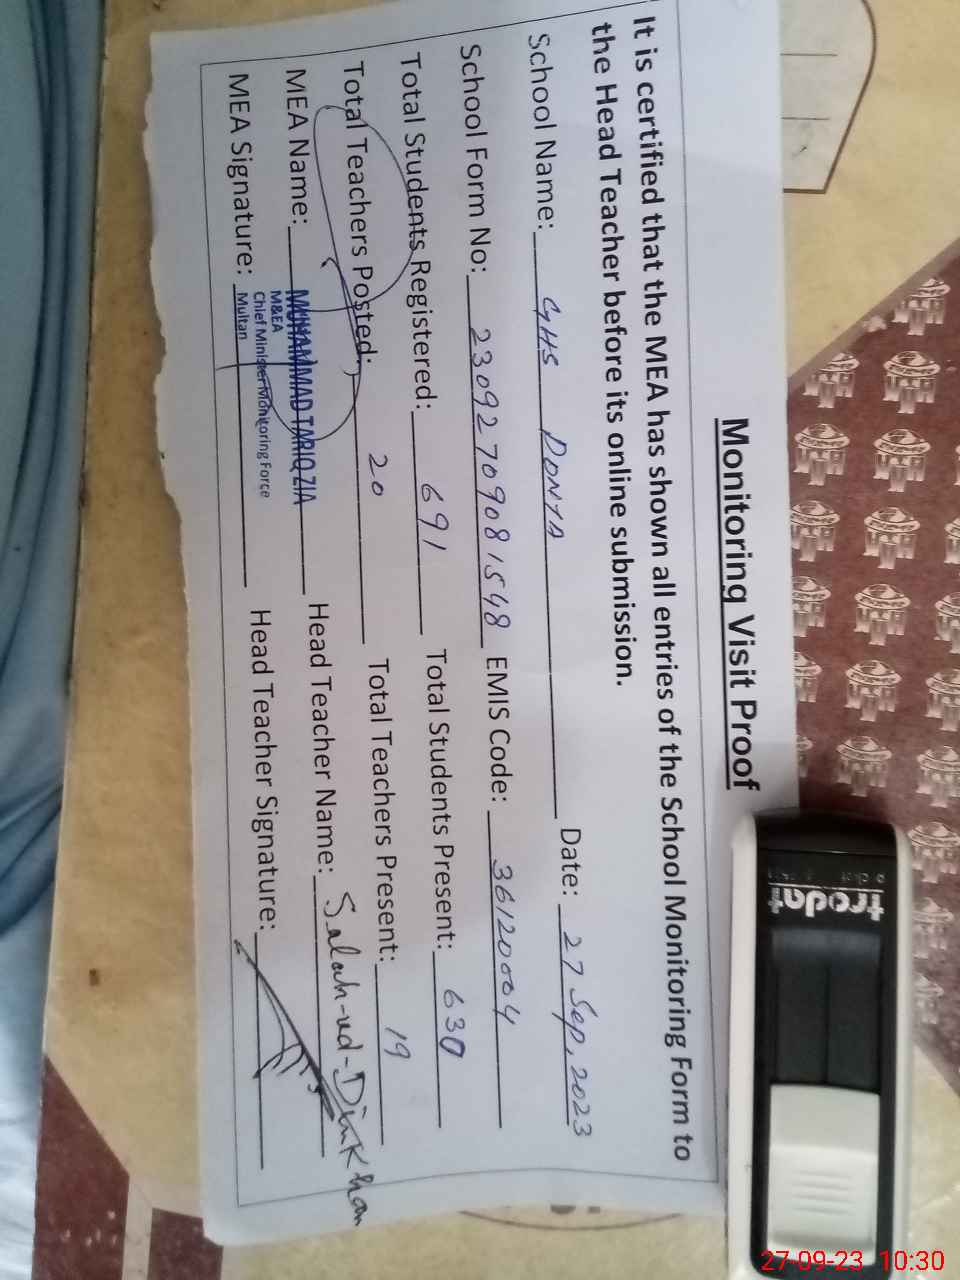 Monitoring Visit Proof
It is certified that the MEA has shown all entries of the School Monitoring Form to
the Head Teacher before its online submission.
School Name: GHS DONYA Date: 27 Sep, 2023
School Form No: 230927090815 48 EMIS Code: 36120004
Total Students Registered: 691 Total Students Present: 630
Total Teachers Posted: 20 Total Teachers Present: 19
MEA Name: MUHAMMAD TARIQ ZIA Head Teacher Name: Salah-ud-Din Khan
M&EA
Chief Minister Monitoring Force
Multan
MEA Signature: Head Teacher Signature:
trodat
27-09-23 10:30